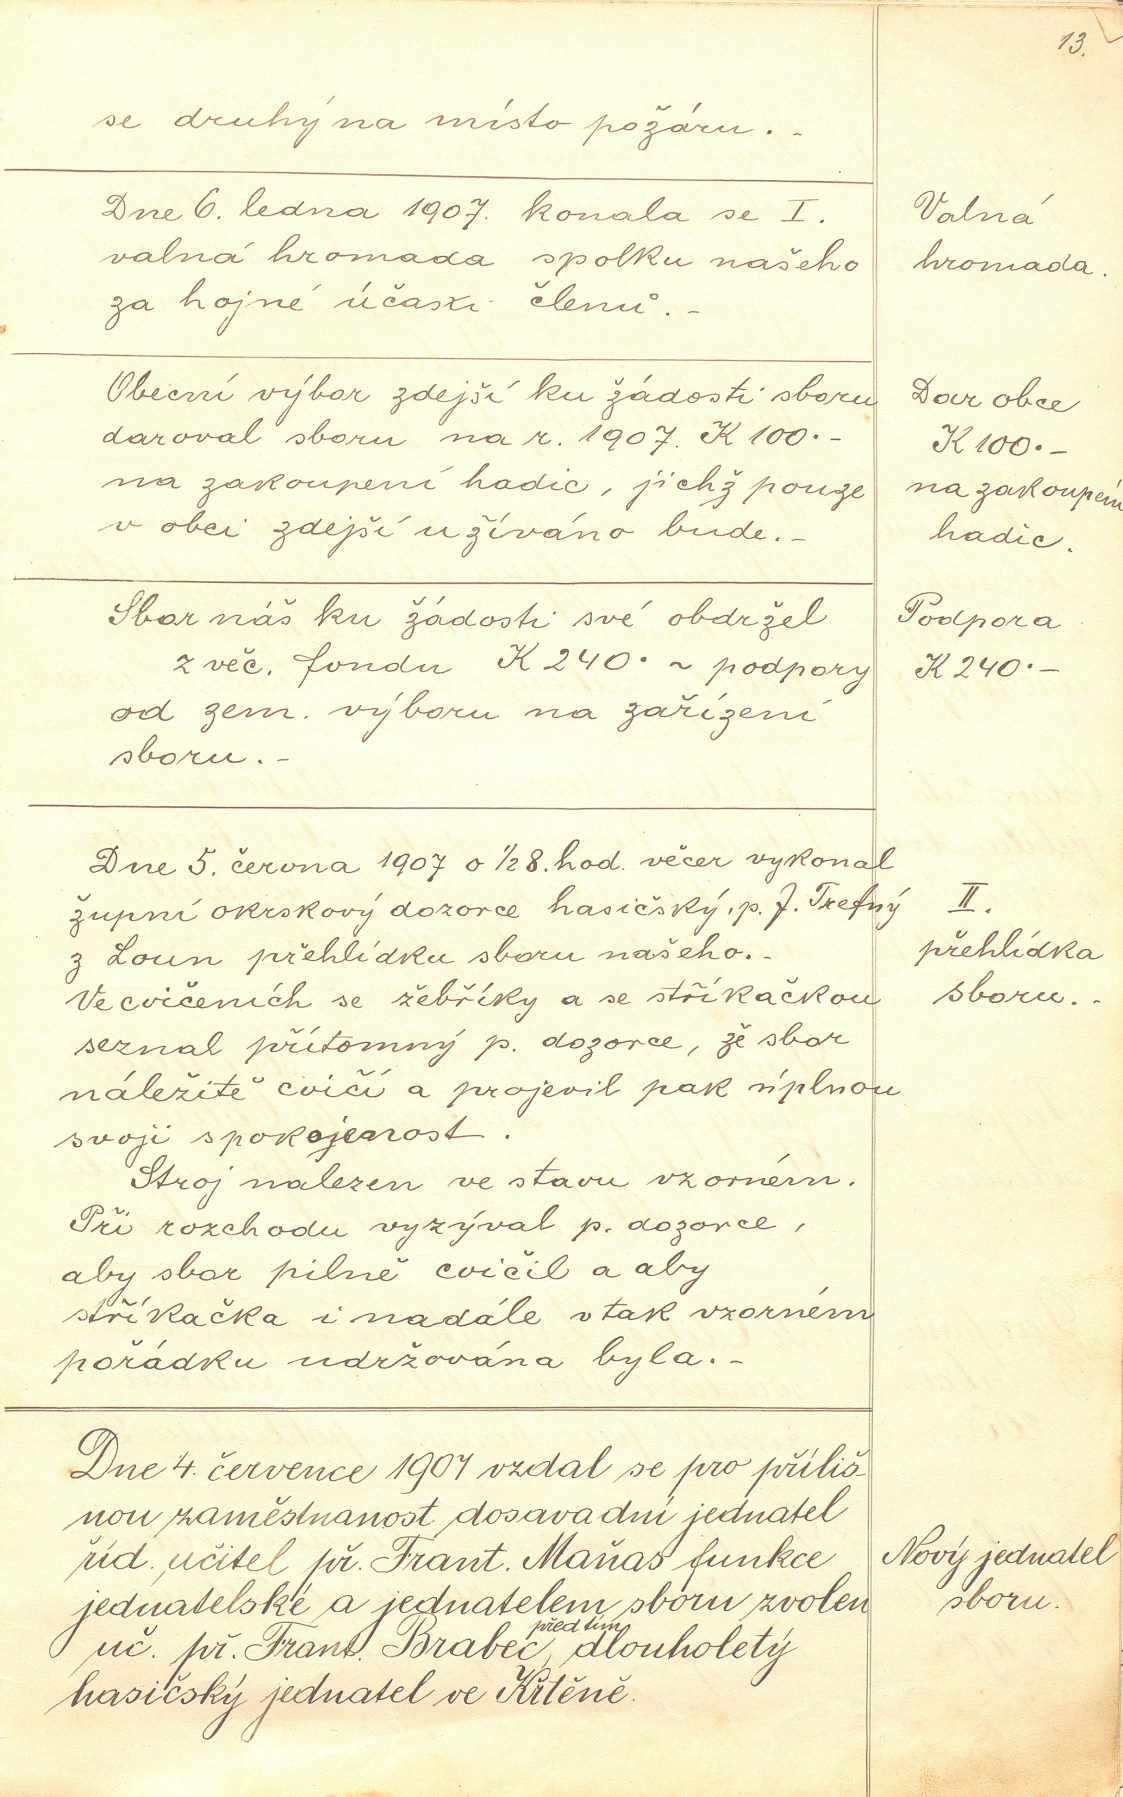 13.
se druhý na místo požáru. -
Dne 6. ledna 1907. konala se I.
valná hromada spolku našeho
za hojné účasti členů. -
Valná
hromada.
Obecní výbor zdejší ku žádosti sboru
daroval sboru na r. 1907. K 100·-
na zakoupení hadic, jichž pouze
v obci zdejší užíváno bude. -
Dar obce
K 100·-
na zakoupení
hadic.
Sbor náš ku žádosti své obdržel
z věč. fondu K 240·~ podpory
od zem. výboru na zařízení
sboru. -
Podpora
K 240·-
Dne 5. června 1907 o ½8. hod. večer vykonal
župní okrskový dozorce hasičský, p. J. Trefný
z Loun přehlídku sboru našeho. -
Ve cvičeních se žebříky a se stříkačkou
seznal přítomný p. dozorce, že sbor
náležitě cvičí a projevil pak úplnou
svoji spokojenost.
Stroj nalezen ve stavu vzorném.
Při rozchodu vyzýval p. dozorce,
aby sbor pilně cvičil a aby
stříkačka i nadále v tak vzorném
pořádku udržována byla. -
II.
přehlídka
sboru. -
Dne 4. července 1907 vzdal se pro příliš-
nou zaměstnanost dosavadní jednatel
říd. učitel př. Frant. Maňas funkce
jednatelské a jednatelem sboru zvolen
uč. př. Frant. Brabec, před tím dlouholetý
hasičský jednatel ve Křtěně.
Nový jednatel
sboru.